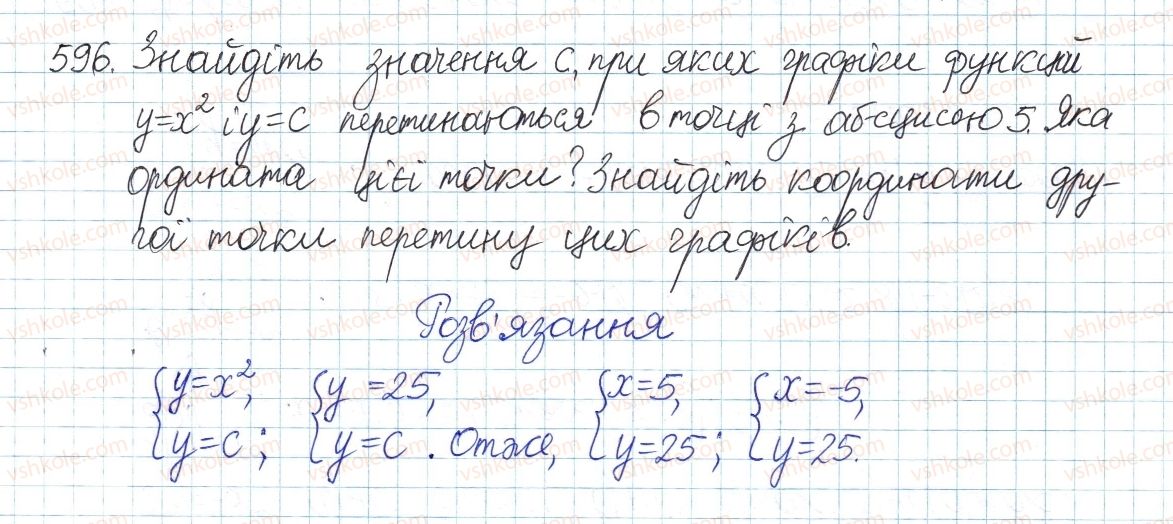 596. Знайдіть значення c, при яких графіки функцій
y=x² і y=c перетинаються в точці з абсцисою 5. Яка
ордината цієї точки? Знайдіть координати дру-
гої точки перетину цих графіків.
Розв'язання
{y=x², {y =25, {x=5, {x=-5,
{y=c; {y=c. Отже, {y=25; {y=25.